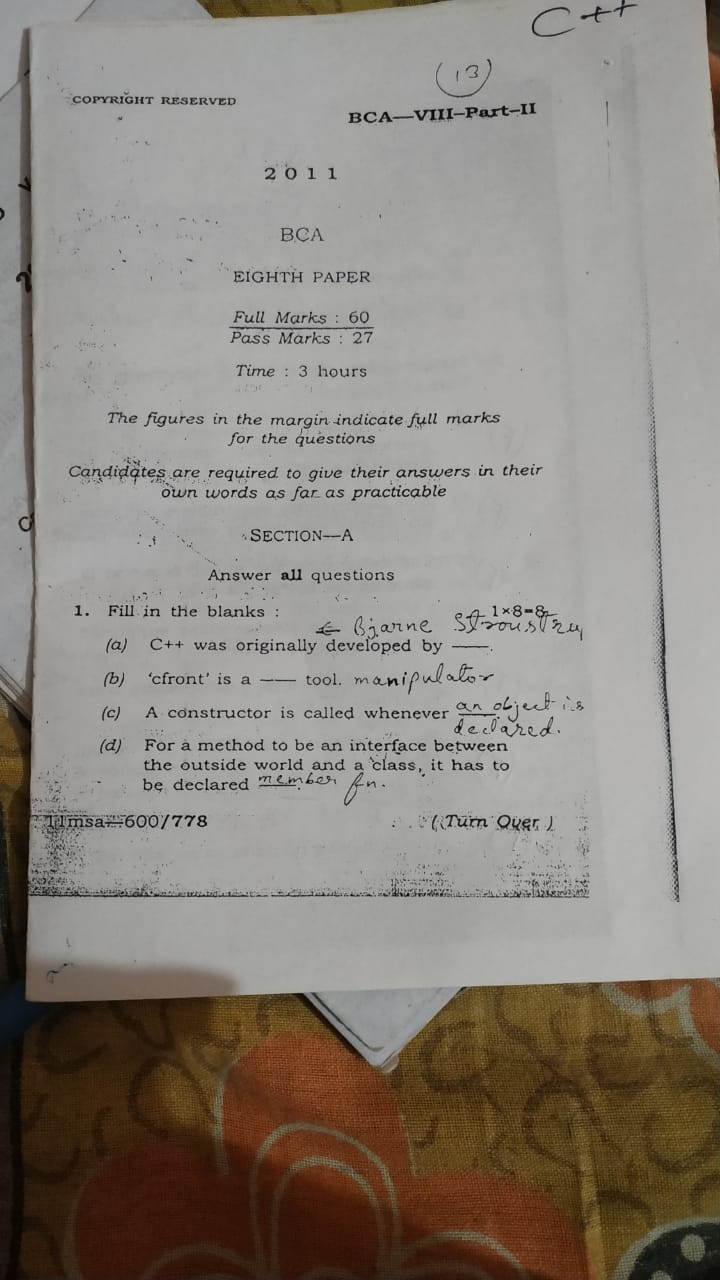 C++
(13)
COPYRIGHT RESERVED
BCA—VIII—Part—II
2011
BCA
EIGHTH PAPER
Full Marks : 60
Pass Marks : 27
Time : 3 hours
The figures in the margin indicate full marks
for the questions
Candidates are required to give their answers in their
own words as far as practicable
SECTION—A
Answer all questions
1. Fill in the blanks : 1×8=8
Bjarne
(a) C++ was originally developed by ——.
(b) 'cfront' is a —— tool. manipulator
(c) A constructor is called whenever an object is
declared.
(d) For a method to be an interface between
the outside world and a class, it has to
be declared member fn.
11msa—600/778 ( Turn Over )